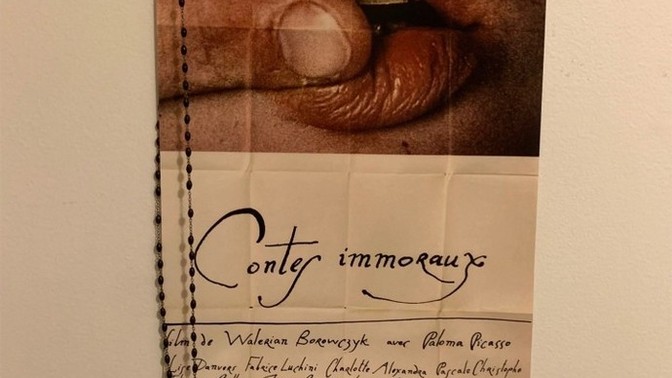 Contes immoraux
film de Walerian Borowczyk avec Paloma Picasso
Lise Danvers Fabrice Luchini Charlotte Alexandra Pascale Christophe